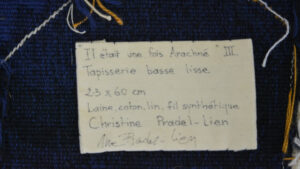 "Il était une fois Arachné" III.
Tapisserie basse lisse.
23 x 60 cm
Laine, coton, lin, fil synthétique
Christine Pradel-Lien
Pradel-Lien